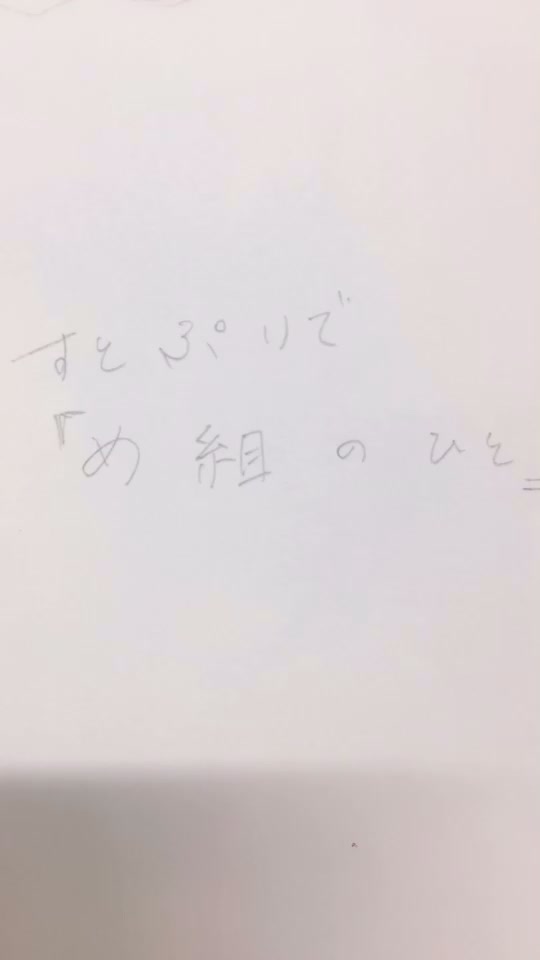 すとぷりで
『め組のひと』